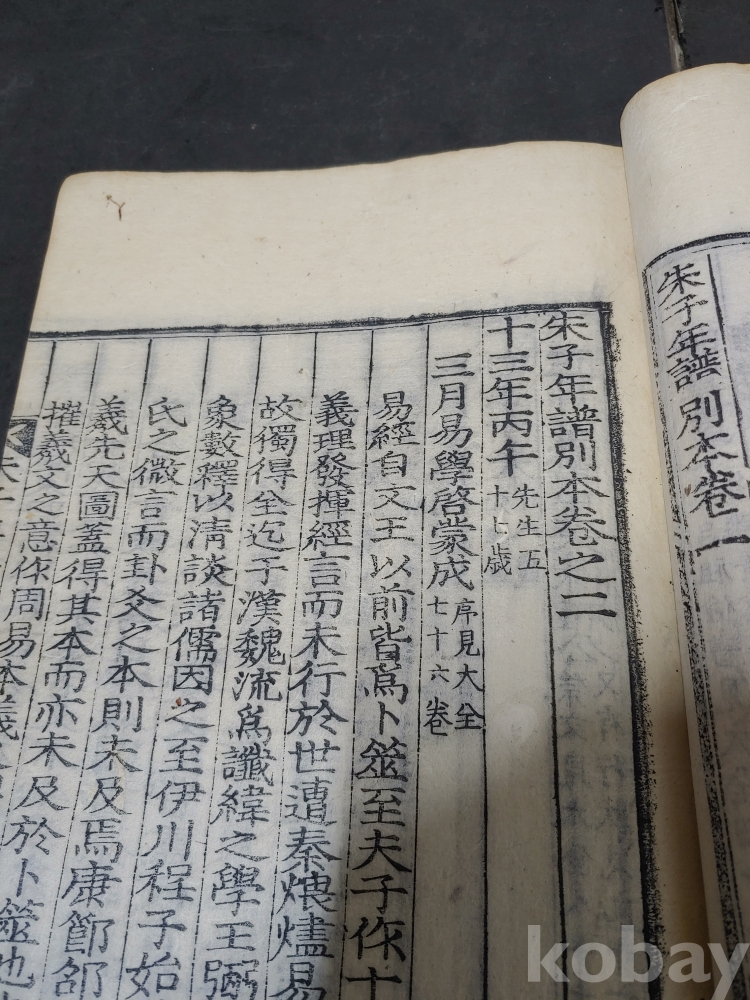 朱子年譜別本卷一
朱子年譜別本卷之二
十三年丙午 先生五十七歲
三月易學啓蒙成 序見大全七十六卷
易經自文王以前皆爲卜筮至夫子作十
義理發揮經言而未行於世遭秦煨燼易
故獨得全迄于漢魏流爲讖緯之學王弼
象數釋以淸談諸儒因之至伊川程子始
氏之微言而卦爻之本則未及焉康節邵
羲先天圖蓋得其本而亦未及於卜筮也
摧羲文之意作周易本義
kobay